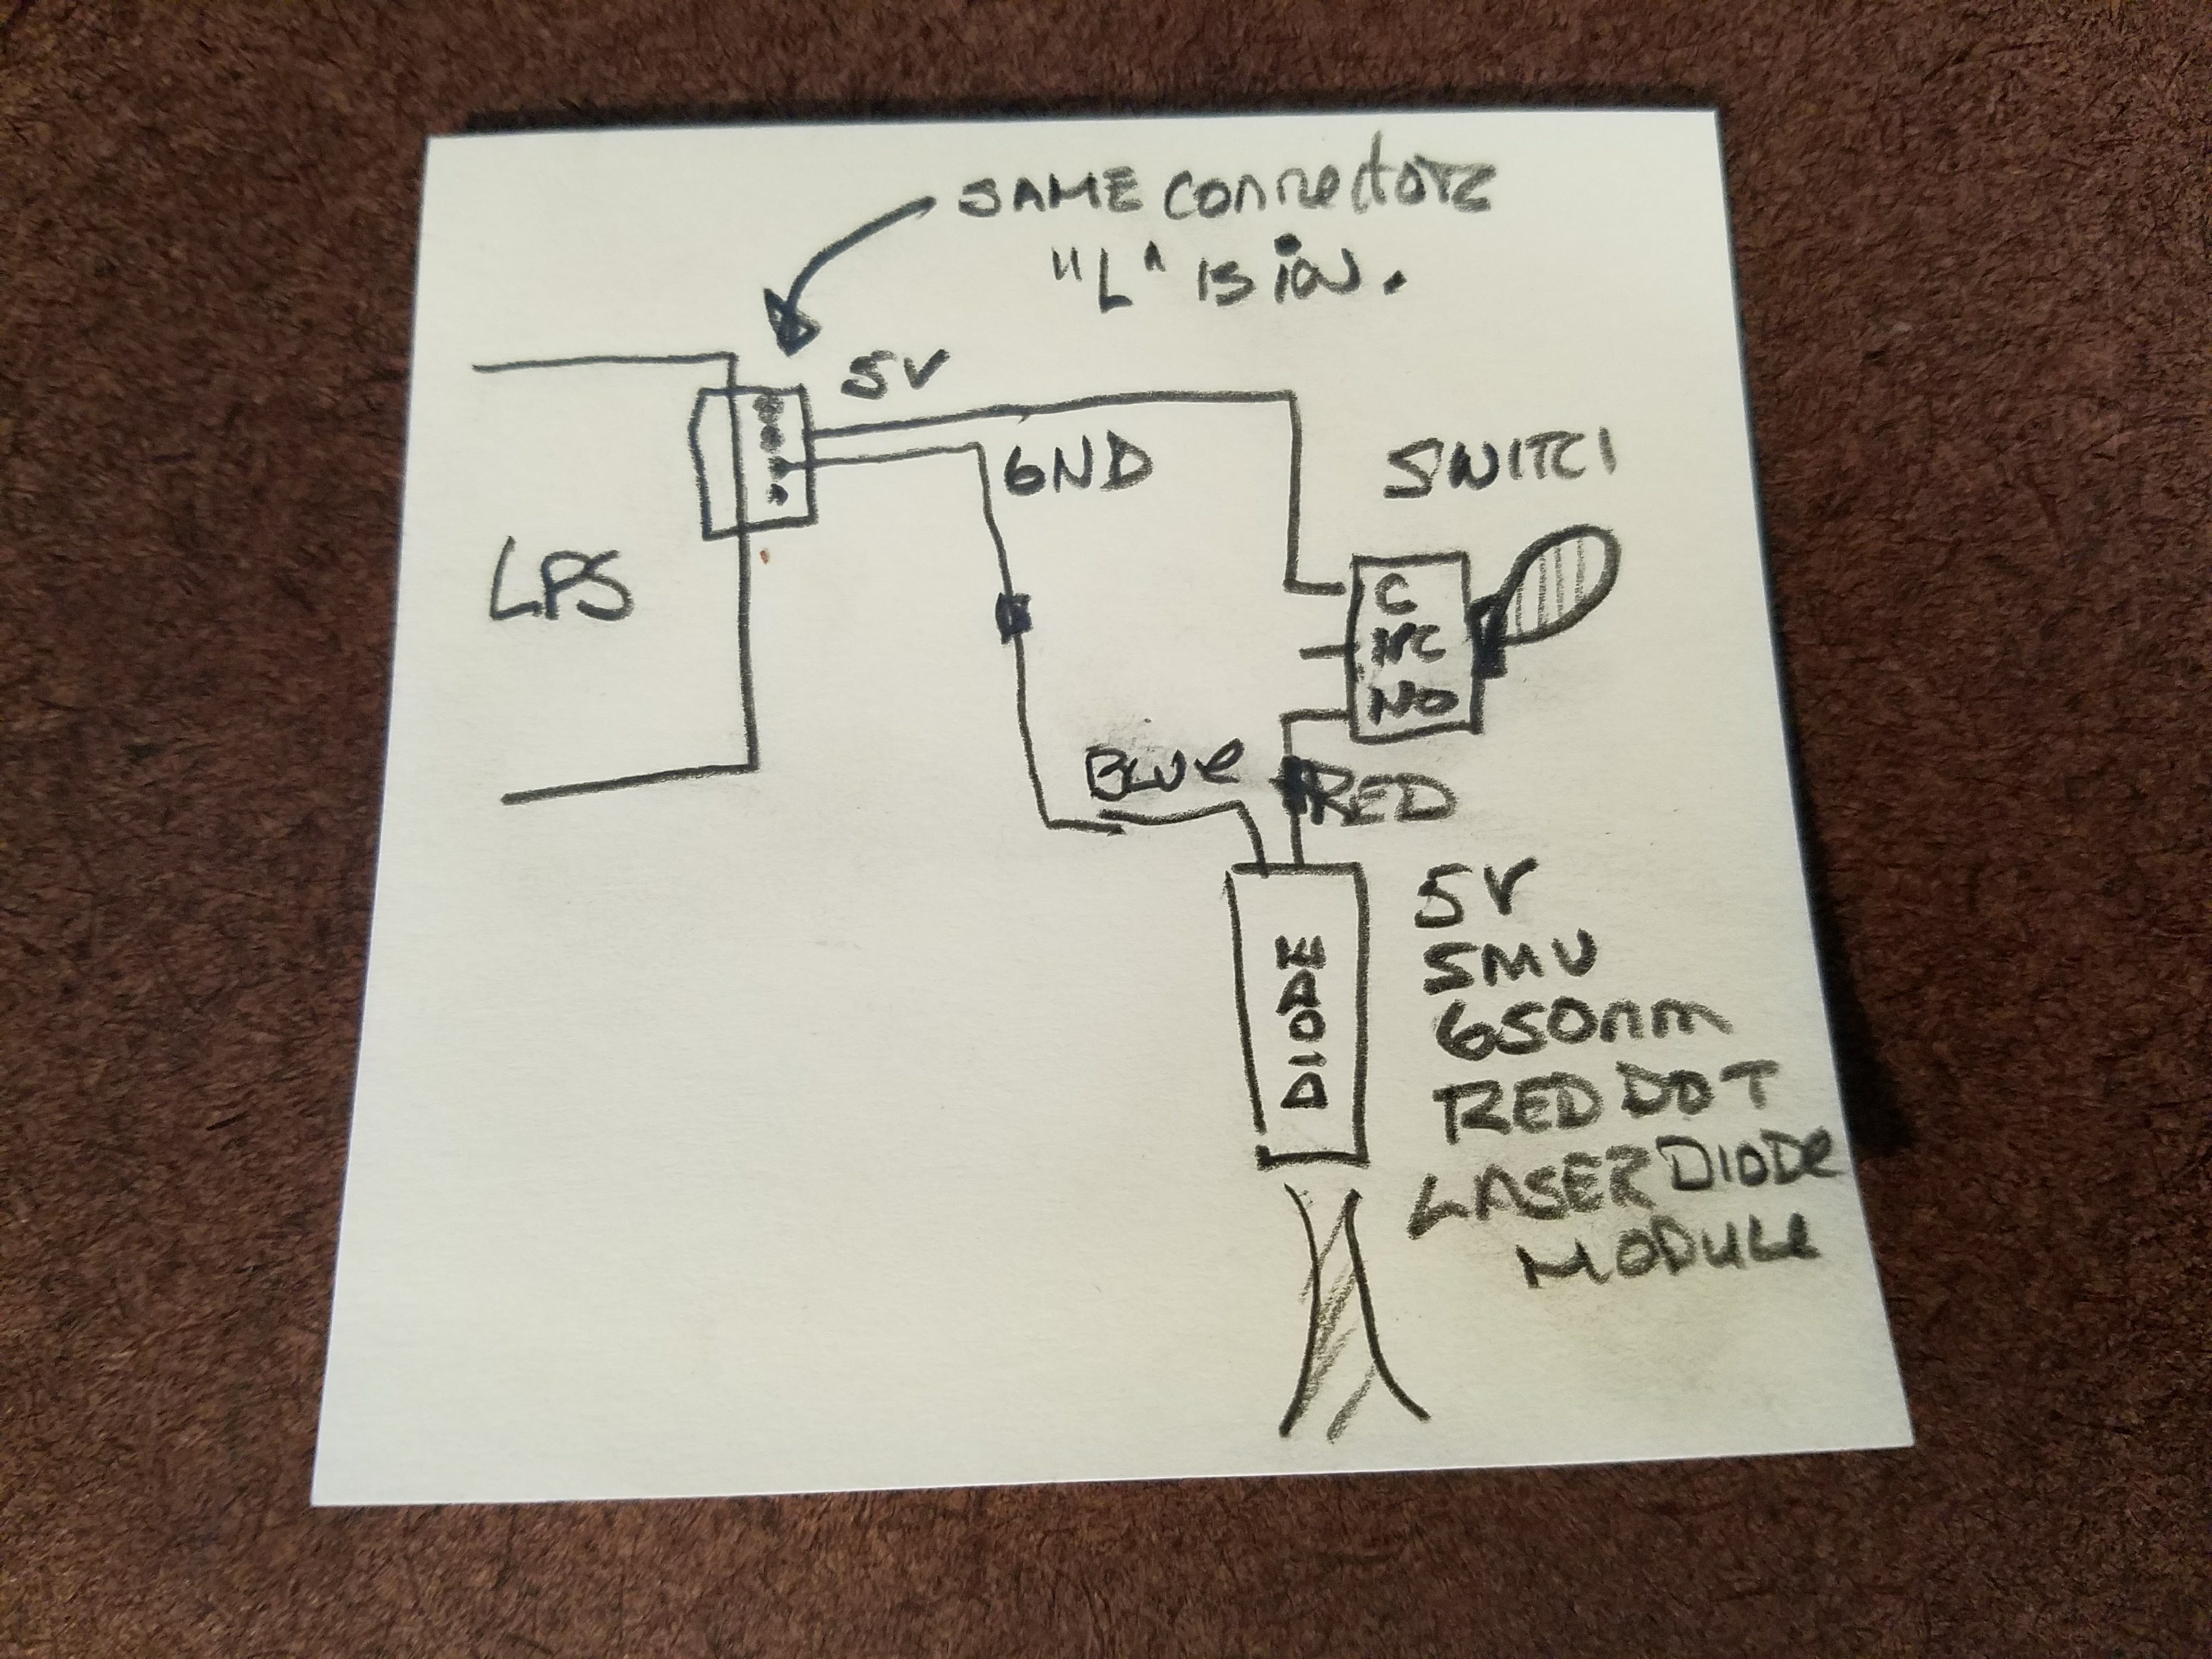 SAME connector
"L" is in.
5V
GND
SWITCH
LPS
C
NC
NO
BLUe
RED
DIODE
5V
5MW
650nm
RED DOT
LASER DIODe
MODULe